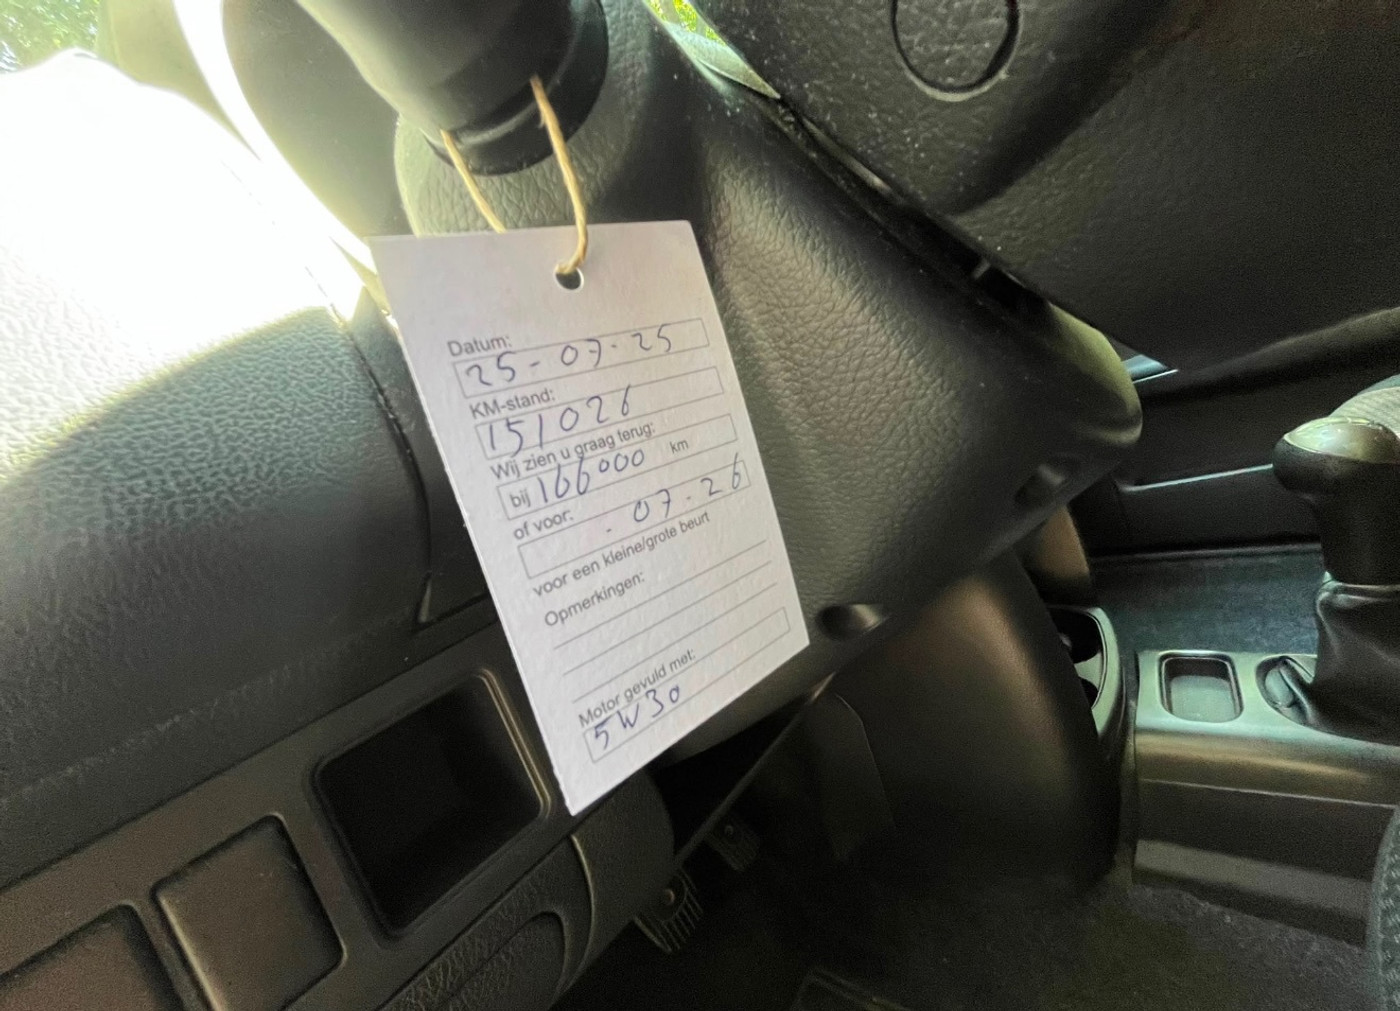 Datum:
25-07-25
KM-stand:
151026
Wij zien u graag terug:
bij 166000 km
of voor:
- 07-26
voor een kleine/grote beurt
Opmerkingen:
Motor gevuld met:
5W30